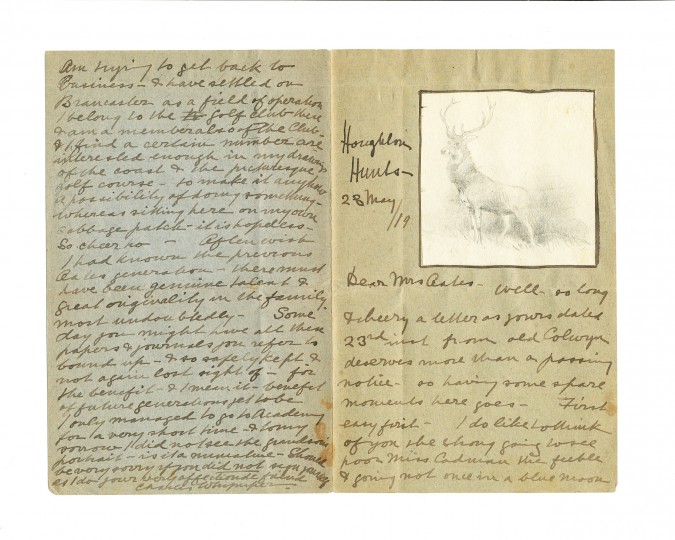 Houghton
Hunts -
28 May
/19
Dear Mrs Oates - Well - so long
& cheery a letter as yours dated
23rd inst from old Colwyn
deserves more than a passing
notice - so having some spare
moments here goes - First
easy first - I do like to think
of you the strong going to see
poor Miss Cadman the feeble
& going not once in a blue moon
Am trying to get back to
Business - & have settled on
Brancaster as a field of operation
I belong to the golf club there
& am a member also of the Club -
& I find a certain number are
interested enough in my drawings
of the coast & the picturesque
golf course - to make it anyhow
a possibility of doing something -
whereas sitting here on my own
cabbage patch - it is hopeless -
So cheer ho - Often wish
I had known the previous
Oates generation - there must
have been genuine talent &
great originality in the family
most undoubtedly - Some
day you might have all these
papers & journals you refer to
bound up - & so safely kept &
not again lost sight of - for
the benefit - & I mean it - benefit
of future generations yet to be
I only managed to go to Academy
for a very short time & to my
sorrow I did not see the grandson's
portrait - is it a miniature - Should
be very sorry if you did not
as I do your very affectionate friend
Charles Whymper -